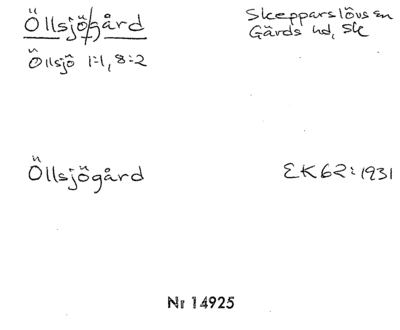 Öllsjögård
Skepparslövs sn
Öllsjö 1:1, 8:2
Gärds hd, Sk
Öllsjögård
EK62:1931
Nr 14925